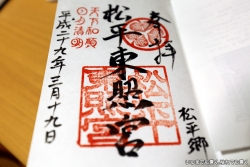 奉拝
天下和順
日月清明
松平東照宮
平成二十九年三月十九日
松平郷